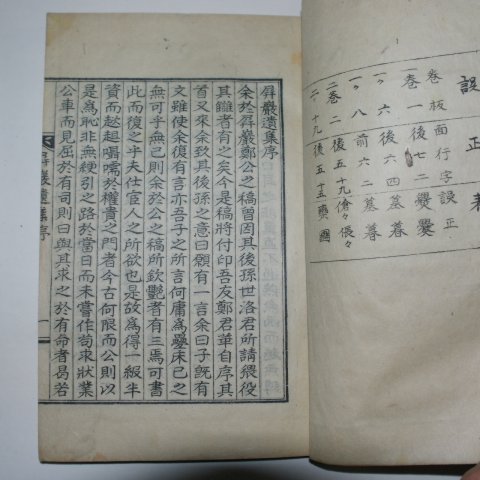 誤正
卷板面行字誤正
一卷一後七二
一〃六後六四
一〃八前六二
二卷二後五十九
二〃十九後五十五
屛巖遺集序
余於屛巖鄭公之稿曾因其後孫世洛君所請猥役
其讎者有之矣今是稿將付印吾友鄭君華自序其
首又來余致其後孫之意曰願有一言余曰子旣有
文雖使余復有言亦吾子之所言何庸爲疊床已之
無可乎無已則余於公之稿所欽艷者有三焉可書
此而復之乎夫仕宦人之所欲也是故爲得一級半
資而趑趄囁嚅於權貴之門者今古何限而公則以
是爲恥非無綆引之路於當日而未嘗作苟求狀業
公車而見屈於有司則曰與其求之於有命者曷若
屛巖遺集序
一